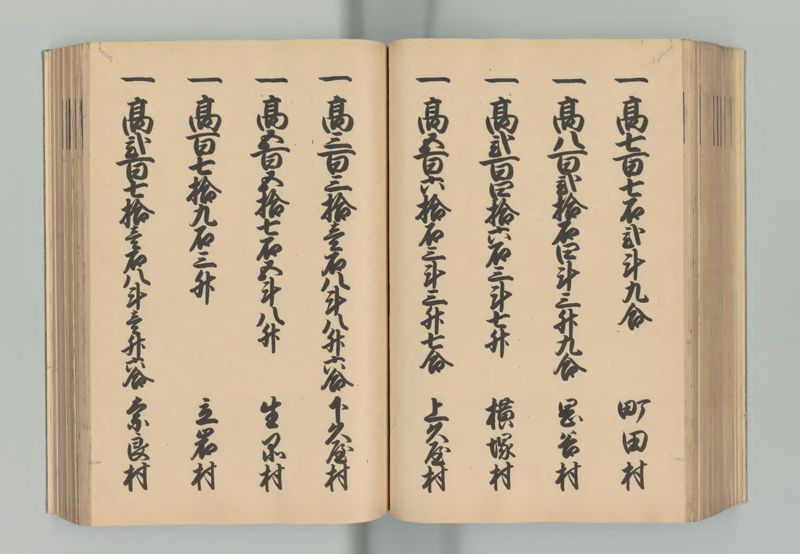 一高七百七石弐斗九合 町田村
一高八百弐拾石四斗三升九合 岡谷村
一高弐百四拾六石三斗七升 横塚村
一高五百六拾石三斗三升七合 上久屋村
一高三百三拾壱石八斗八升六合 下久屋村
一高五百五拾七石五斗八升 生品村
一高百七拾九石三升 立岩村
一高弐百七拾壱石八斗壱升六合 奈良村